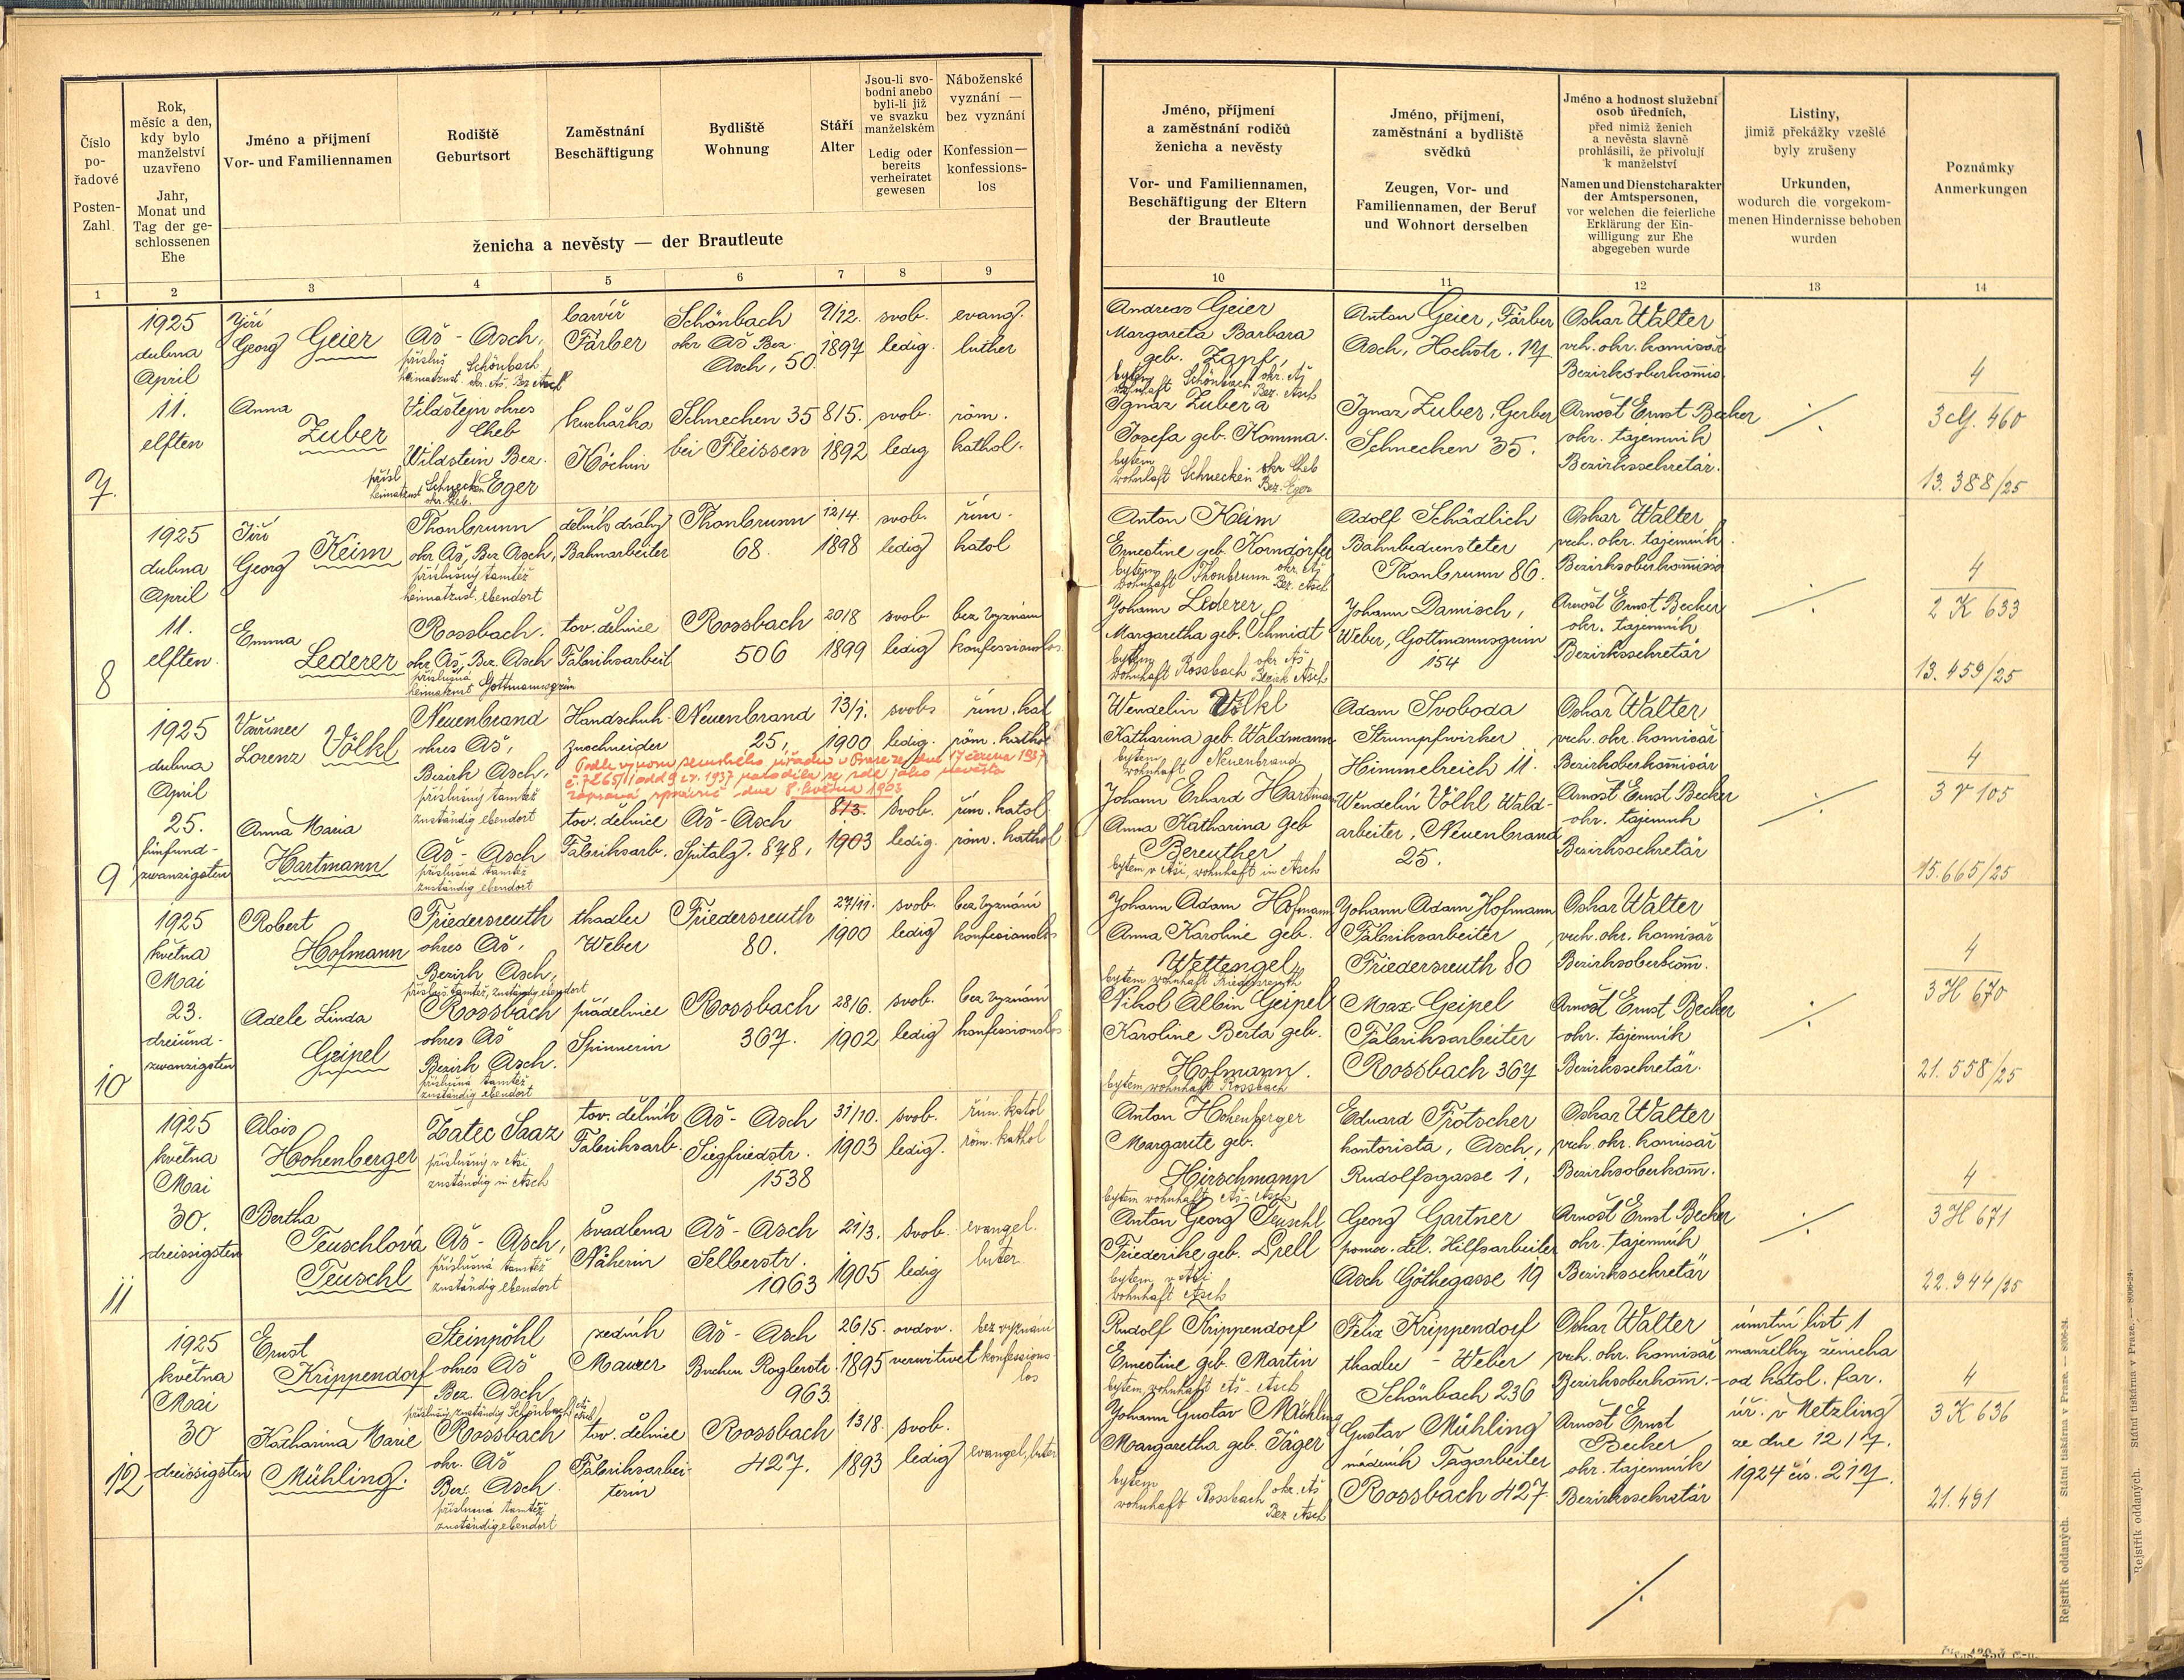 Číslo
po-
řadové
Posten-
Zahl
Rok,
měsíc a den,
kdy bylo
manželství
uzavřeno
Jahr,
Monat und
Tag der ge-
schlossenen
Ehe
Jméno a příjmení
Vor- und Familiennamen
Rodiště
Geburtsort
Zaměstnání
Beschäftigung
Bydliště
Wohnung
Stáří
Alter
Jsou-li svo-
bodni anebo
byli-li již
ve svazku
manželském
Ledig oder
bereits
verheiratet
gewesen
Náboženské
vyznání —
bez vyznání
Konfession—
konfessions-
los
ženicha a nevěsty — der Brautleute
1 2 3 4 5 6 7 8 9
7.
1925
dubna
April
11.
elften
Jiří
Georg Geier
Aš - Asch,
přísluš Schönbach
heimatzust. okr. Aš, Bez Asch
barvíř
Färber
Schönbach
okr Aš Bez.
Asch, 50.
9/12.
1897
svob.
ledig.
evang.
luther
Anna
Zuber
Vildštejn okres
Cheb
Wildstein Bez.
Eger
přísl
heimatzust Schnecken
okr. Cheb.
kuchařka
Köchin
Schnecken 35
bei Fleissen
8/5.
1892
svob.
ledig
röm.
kathol.
8
1925
dubna
April
11.
elften.
Jiří
Georg Keim
Thonbrunn
okr Aš, Bez Asch,
příslušný tamtéž
heimatzust. ebendort
dělník dráhy
Bahnarbeiter
Thonbrunn
68.
12/4.
1898
svob.
ledig
řím.
katol
Emma
Lederer
Rossbach.
okr Aš, Bez. Asch
příslušná
heimatzust Gottmannsgrün
tov. dělnice
Fabriksarbeit
Rossbach
506
20/8
1899
svob.
ledig
bez vyznání
konfessionslos.
9
1925
dubna
April
25.
fünfund-
zwanzigsten
Vavřinec
Lorenz Völkl
Neuenbrand
okres Aš,
Bezirk Asch,
příslušný tamtéž
zuständig ebendort
Handschuh-
zuschneider
Neuenbrand
25,
13/1.
1900
svob.
ledig.
řím. kat
röm. kathol
Podle výnosu zemského úřadu v Praze ze dne 17 června 1937
č. 7265/1 odd 9 ex. 1937 narodila se zde jako nevěsta
zapsaná správně dne 8. května 1903
Anna Maria
Hartmann
Aš - Asch
příslušná tamtéž
zuständig ebendort
tov. dělnice
Fabriksarb.
Aš - Asch
Spitalg. 878,
8/3.
1903
svob.
ledig.
řím. katol
röm. kathol
10
1925
května
Mai
23.
dreiund-
zwanzigsten
Robert
Hofmann
Friedersreuth
okres Aš,
Bezirk Asch,
přísluš. tamtéž, zuständig ebendort
tkadlec
Weber
Friedersreuth
80.
27/11.
1900
svob.
ledig
bez vyznání
konfesionslos
Adele Linda
Geipel
Rossbach
okres Aš
Bezirk Asch.
příslušná tamtéž
zuständig ebendort
přádelnice
Spinnerin
Rossbach
367.
28/6.
1902
svob.
ledig
bez vyznání
konfessionslos
11
1925
května
Mai
30.
dreissigsten
Alois
Hohenberger
Žatec Saaz
příslušný v Aši
zuständig in Asch
tov. dělník
Fabriksarb.
Aš - Asch
Siegfriedstr.
1538
31/10.
1903
svob.
ledig.
řím. katol
röm. kathol
Bertha
Teuschlová
Teuschl
Aš - Asch,
příslušná tamtéž
zuständig ebendort
švadlena
Näherin
Aš - Asch
Selberstr.
1963
21/3.
1905
svob.
ledig
evangel.
luter.
12
1925
května
Mai
30
dreissigsten
Ernst
Krippendorf
Steinpöhl
okres Aš
Bez. Asch,
příslušný zuständig Schönbach
zedník
Maurer
Aš - Asch
Buchen Roglerstr.
963
26/5.
1895
ovdov.
verwitwet
bez vyznání
konfessions-
los
Katharina Marie
Mühling.
Rossbach
okr. Aš
Bez. Asch
příslušná tamtéž
zuständig ebendort
tov. dělnice
Fabriksarbei-
terin
Rossbach
427.
13/8.
1893
svob.
ledig
evangel, luter
Jméno, příjmení
a zaměstnání rodičů
ženicha a nevěsty
Vor- und Familiennamen,
Beschäftigung der Eltern
der Brautleute
Jméno, příjmení,
zaměstnání a bydliště
svědků
Zeugen, Vor- und
Familiennamen, der Beruf
und Wohnort derselben
Jméno a hodnost služební
osob úředních,
před nimiž ženich
a nevěsta slavně
prohlásili, že přivolují
k manželství
Namen und Dienstcharakter
der Amtspersonen,
vor welchen die feierliche
Erklärung der Ein-
willigung zur Ehe
abgegeben wurde
Listiny,
jimiž překážky vzešlé
byly zrušeny
Urkunden,
wodurch die vorgekom-
menen Hindernisse behoben
wurden
Poznámky
Anmerkungen
10 11 12 13 14
Andreas Geier
Margareta Barbara
geb. Zapf,
bytem Schönbach okr. Aš
wohnhaft Bez. Asch
Ignaz Zuber a
Josefa geb. Komma.
bytem
wohnhaft Schnecken okr Cheb
Bez. Eger
Anton Geier, Färber
Asch, Hochstr. 17
Ignaz Zuber, Gerber
Schnecken 35.
Oskar Walter
vrch. okr. komisař
Bezirksoberkommis
Arnošt Ernst Becker
okr. tajemník
Bezirkssekretär.
4
3 G. 460
13.388/25
Anton Keim
Ernestine geb. Korndörfer
bytem Thonbrunn okr. Aš
wohnhaft Bez. Asch
Johann Lederer
Margaretha geb. Schmidt
bytem okr Aš
wohnhaft Rossbach Bezirk Asch
Adolf Schädlich
Bahnbediensteter
Thonbrunn 86.
Johann Damisch,
Weber, Gottmannsgrün
154
Oskar Walter
vrch. okr. tajemník
Bezirksoberkommissä
Arnošt Ernst Becker
okr. tajemník
Bezirkssekretär
4
2 K 633
13.459/25
Wendelin Völkl
Katharina geb. Waldmann
bytem
wohnhaft Neuenbrand
Johann Erhard Hartmann
Anna Katharina geb
Bereuther
bytem v Aši, wohnhaft in Asch
Adam Svoboda
Strumpfwirker
Himmelreich 11.
Wendelin Völkl Wald-
arbeiter, Neuenbrand
25.
Oskar Walter
vrch. okr. komisař
Bezirksoberkommisär
Arnošt Ernst Becker
okr. tajemník
Bezirkssekretär
4
3 V 105
15.665/25
Johann Adam Hofmann
Anna Karoline geb.
Wettengel,
bytem wohnhaft Friedersreuth
Nikol Albin Geipel
Karoline Berta geb.
Hofmann.
bytem wohnhaft Rossbach
Johann Adam Hofmann
Fabriksarbeiter
Friedersreuth 80
Max Geipel
Fabriksarbeiter
Rossbach 367
Oskar Walter
vrch. okr. komisař
Bezirksoberkom̄.
Arnošt Ernst Becker
okr. tajemník
Bezirkssekretär.
4
3 H 670
21.558/25
Anton Hohenberger
Margarete geb.
Hirschmann
bytem wohnhaft Aš - Asch
Anton Georg Teuschl
Friederike geb. Drell
bytem v Aši
wohnhaft Asch
Eduard Trötscher
kontorista, Asch,
Rudolfsgasse 1,
Georg Gartner
pomoc. děl. Hilfsarbeiter
Asch Göthegasse 19
Oskar Walter
vrch. okr. komisař
Bezirksoberkom̄.
Arnošt Ernst Becker
okr. tajemník
Bezirkssekretär
4
3 H 671
22.944/25
Rudolf Krippendorf
Ernestine geb. Martin
bytem, wohnhaft Aš - Asch
Johann Gustav Mühling
Margaretha geb. Jäger
bytem
wohnhaft Rossbach okr. Aš
Bez Asch
Felix Krippendorf
tkadlec - Weber
Schönbach 236
Gustav Mühling
nádeník Tagarbeiter
Rossbach 427
Oskar Walter
vrch. okr. komisař
Bezirksoberkom̄.
Arnošt Ernst
Becker
okr. tajemník
Bezirkssekretär
úmrtní list 1
manželky ženicha
od katol. far.
úř. v Netzling
ze dne 12/7.
1924 čís. 217.
4
3 K 636
21.491
Rejstřík oddaných. Státní tiskárna v Praze. — 8006-24.
Rejstřík oddaných. Státní tiskárna v Praze. — 8006-24.